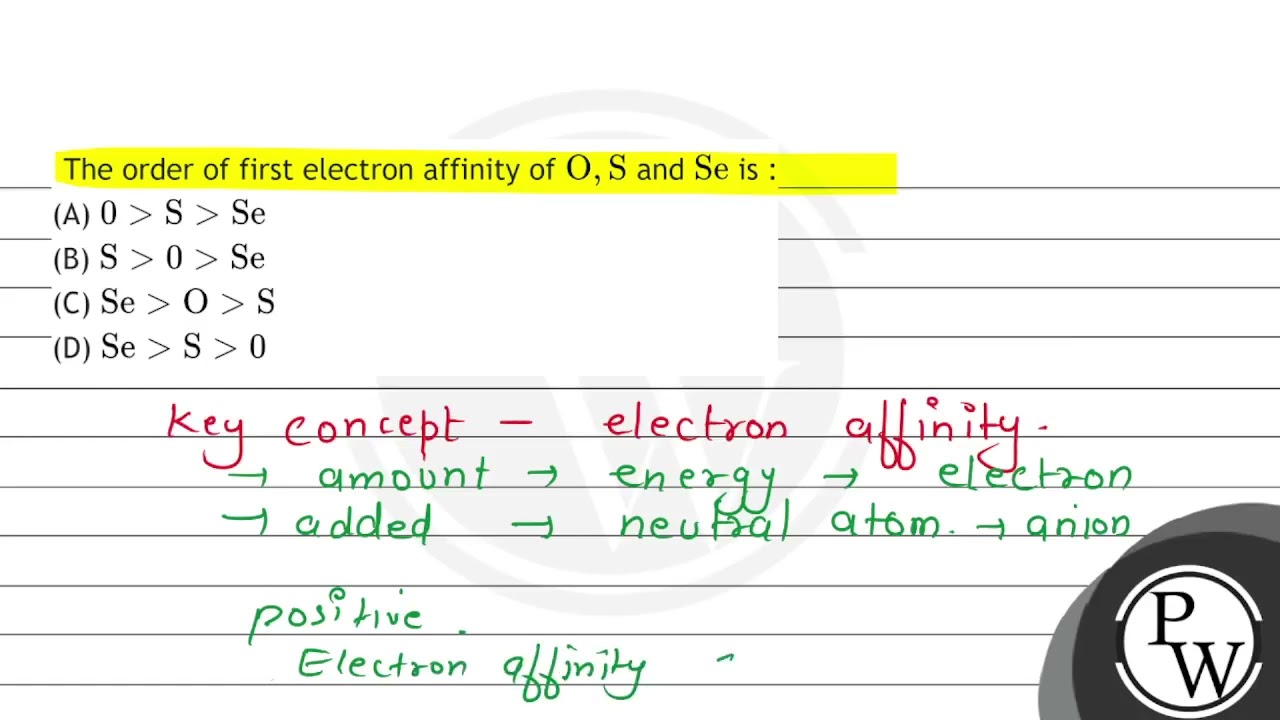 The order of first electron affinity of O, S and Se is :
(A) 0 > S > Se
(B) S > 0 > Se
(C) Se > O > S
(D) Se > S > 0
Key concept - electron affinity.
→ amount → energy → electron
→ added → neutral atom. → anion
positive.
Electron affinity
PW